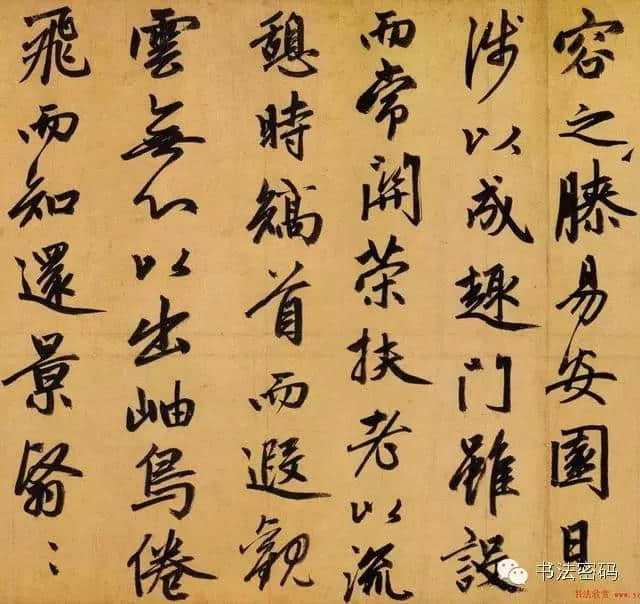 容之膝易安園日
涉以成趣門雖設
而常關策扶老以流
憩時矯首而遐觀
雲無心以出岫鳥倦
飛而知還景翳:
书法密码
书法欣赏 www.